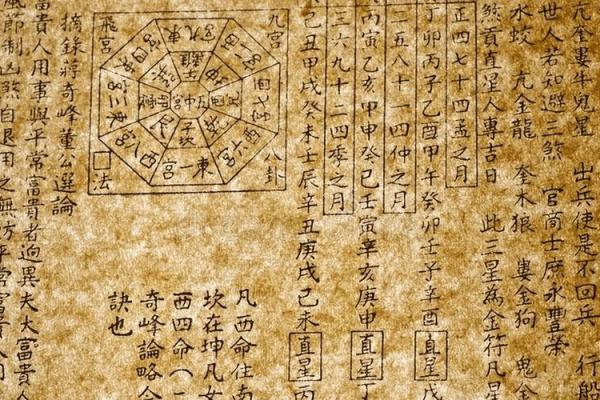 亢奎婁牛鬼星 出兵使是不回兵 行船
世人若知避三煞 官商士庶永豐榮
水蛟 亢金龍 奎木狼 婁金狗 鬼金
煞貢直星人專吉日 此三星為金符凡星
正四七十四孟之月
丁卯丙子乙酉甲午癸卯壬子辛酉 直星 戊
二五八十一四仲之月
丙寅乙亥甲申癸巳壬寅辛亥庚申 直星 丁
三六九十二四季之月
己丑甲戌癸未壬辰辛丑庚戌己未 直星 丙
九宮
八卦
飛宮
法
中宮
坎
東一宮
凡西命住南
坎在坤凡女
西四命(一
奇峰論略
訣也
摘錄蔣奇峰董公選論
富貴人用事與平常富貴者迥異夫大富貴人
風節制凶煞自退用之無妨平常富貴人用